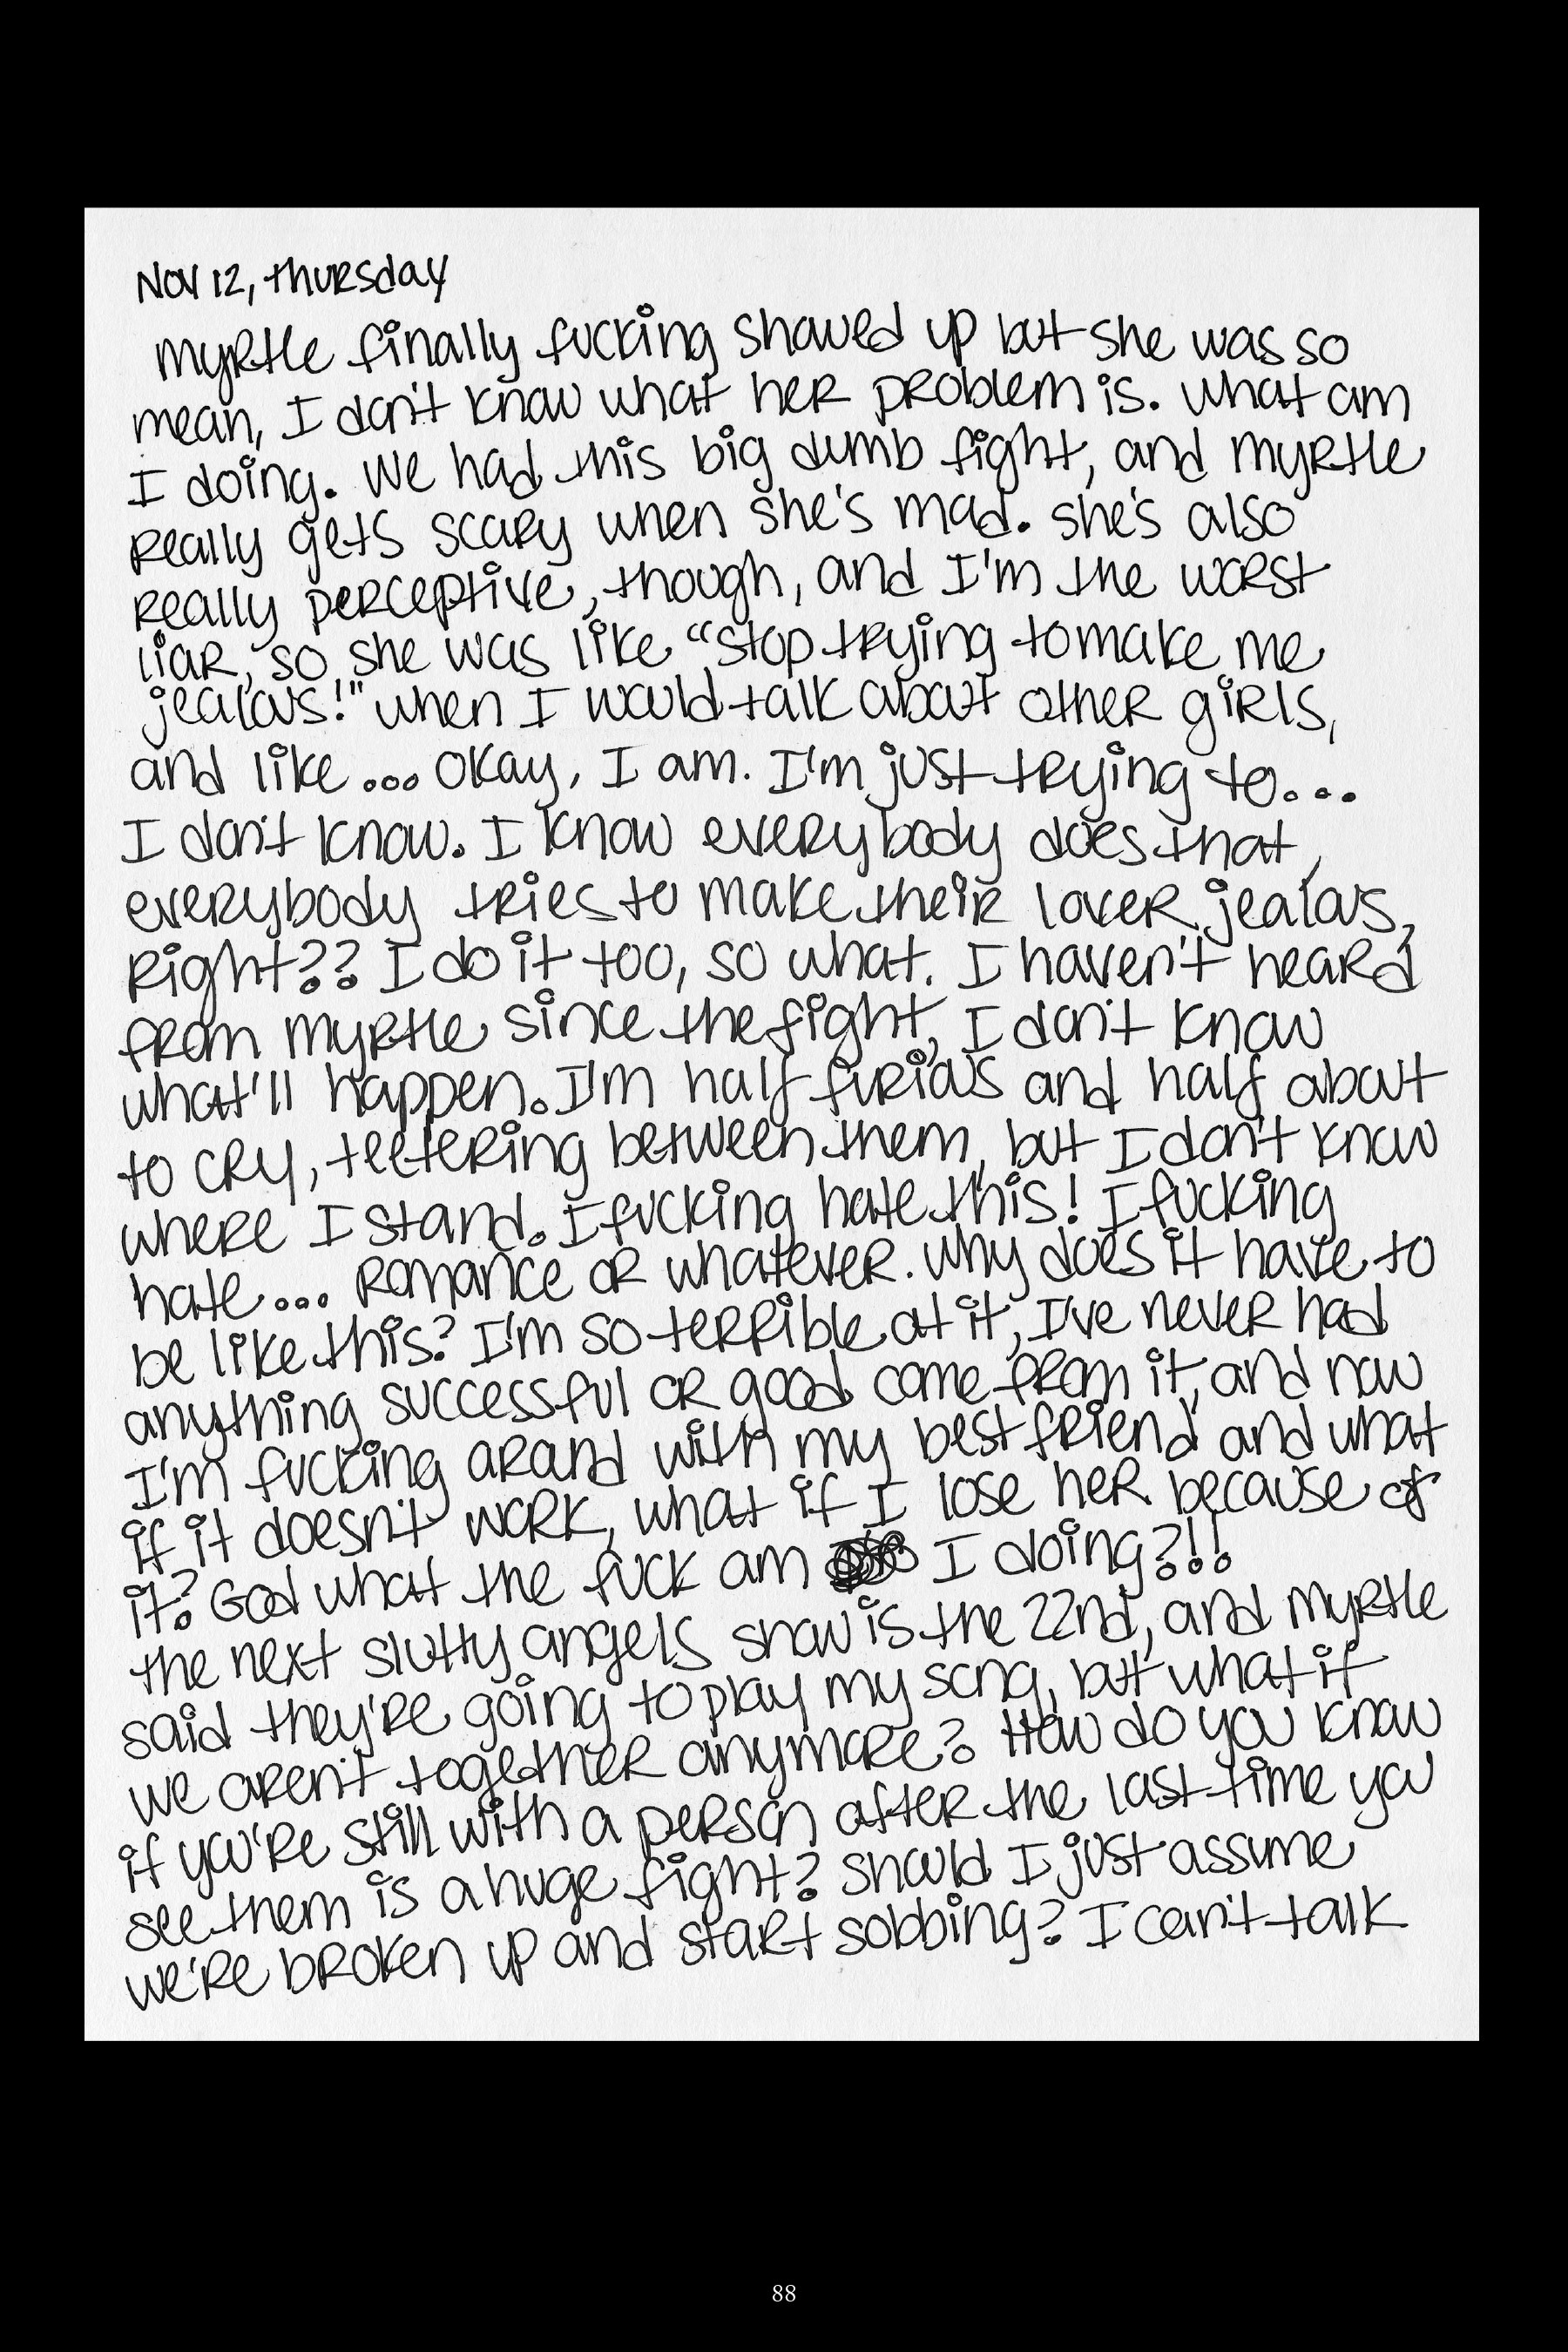 Nov 12, thursday
Myrtle finally fucking showed up but she was so
mean, I don't know what her problem is. What am
I doing. We had this big dumb fight, and Myrtle
Really gets scary when she's mad. She's also
really perceptive, though, and I'm the worst
liar, so she was like "stop trying to make me
jealous!" when I would talk about other girls,
and like... okay, I am. I'm just trying to...
I don't know. I know everybody does that,
everybody tries to make their lover jealous,
Right?? I do it too, so what. I haven't heard
from Myrtle since the fight, I don't know
what'll happen. I'm half furious and half about
to cry, teetering between them, but I don't know
where I stand. I fucking hate this! I fucking
hate... romance or whatever. Why does it have to
be like this? I'm so terrible at it, I've never had
anything successful or good come from it, and now
I'm fucking around with my best friend and what
if it doesn't work, what if I lose her because of
it? God what the fuck am I doing?!!
the next slutty angels show is the 22nd, and Myrtle
said they're going to play my song, but what if
we aren't together anymore? How do you know
if you're still with a person after the last time you
see them is a huge fight? Should I just assume
we're broken up and start sobbing? I can't talk
88